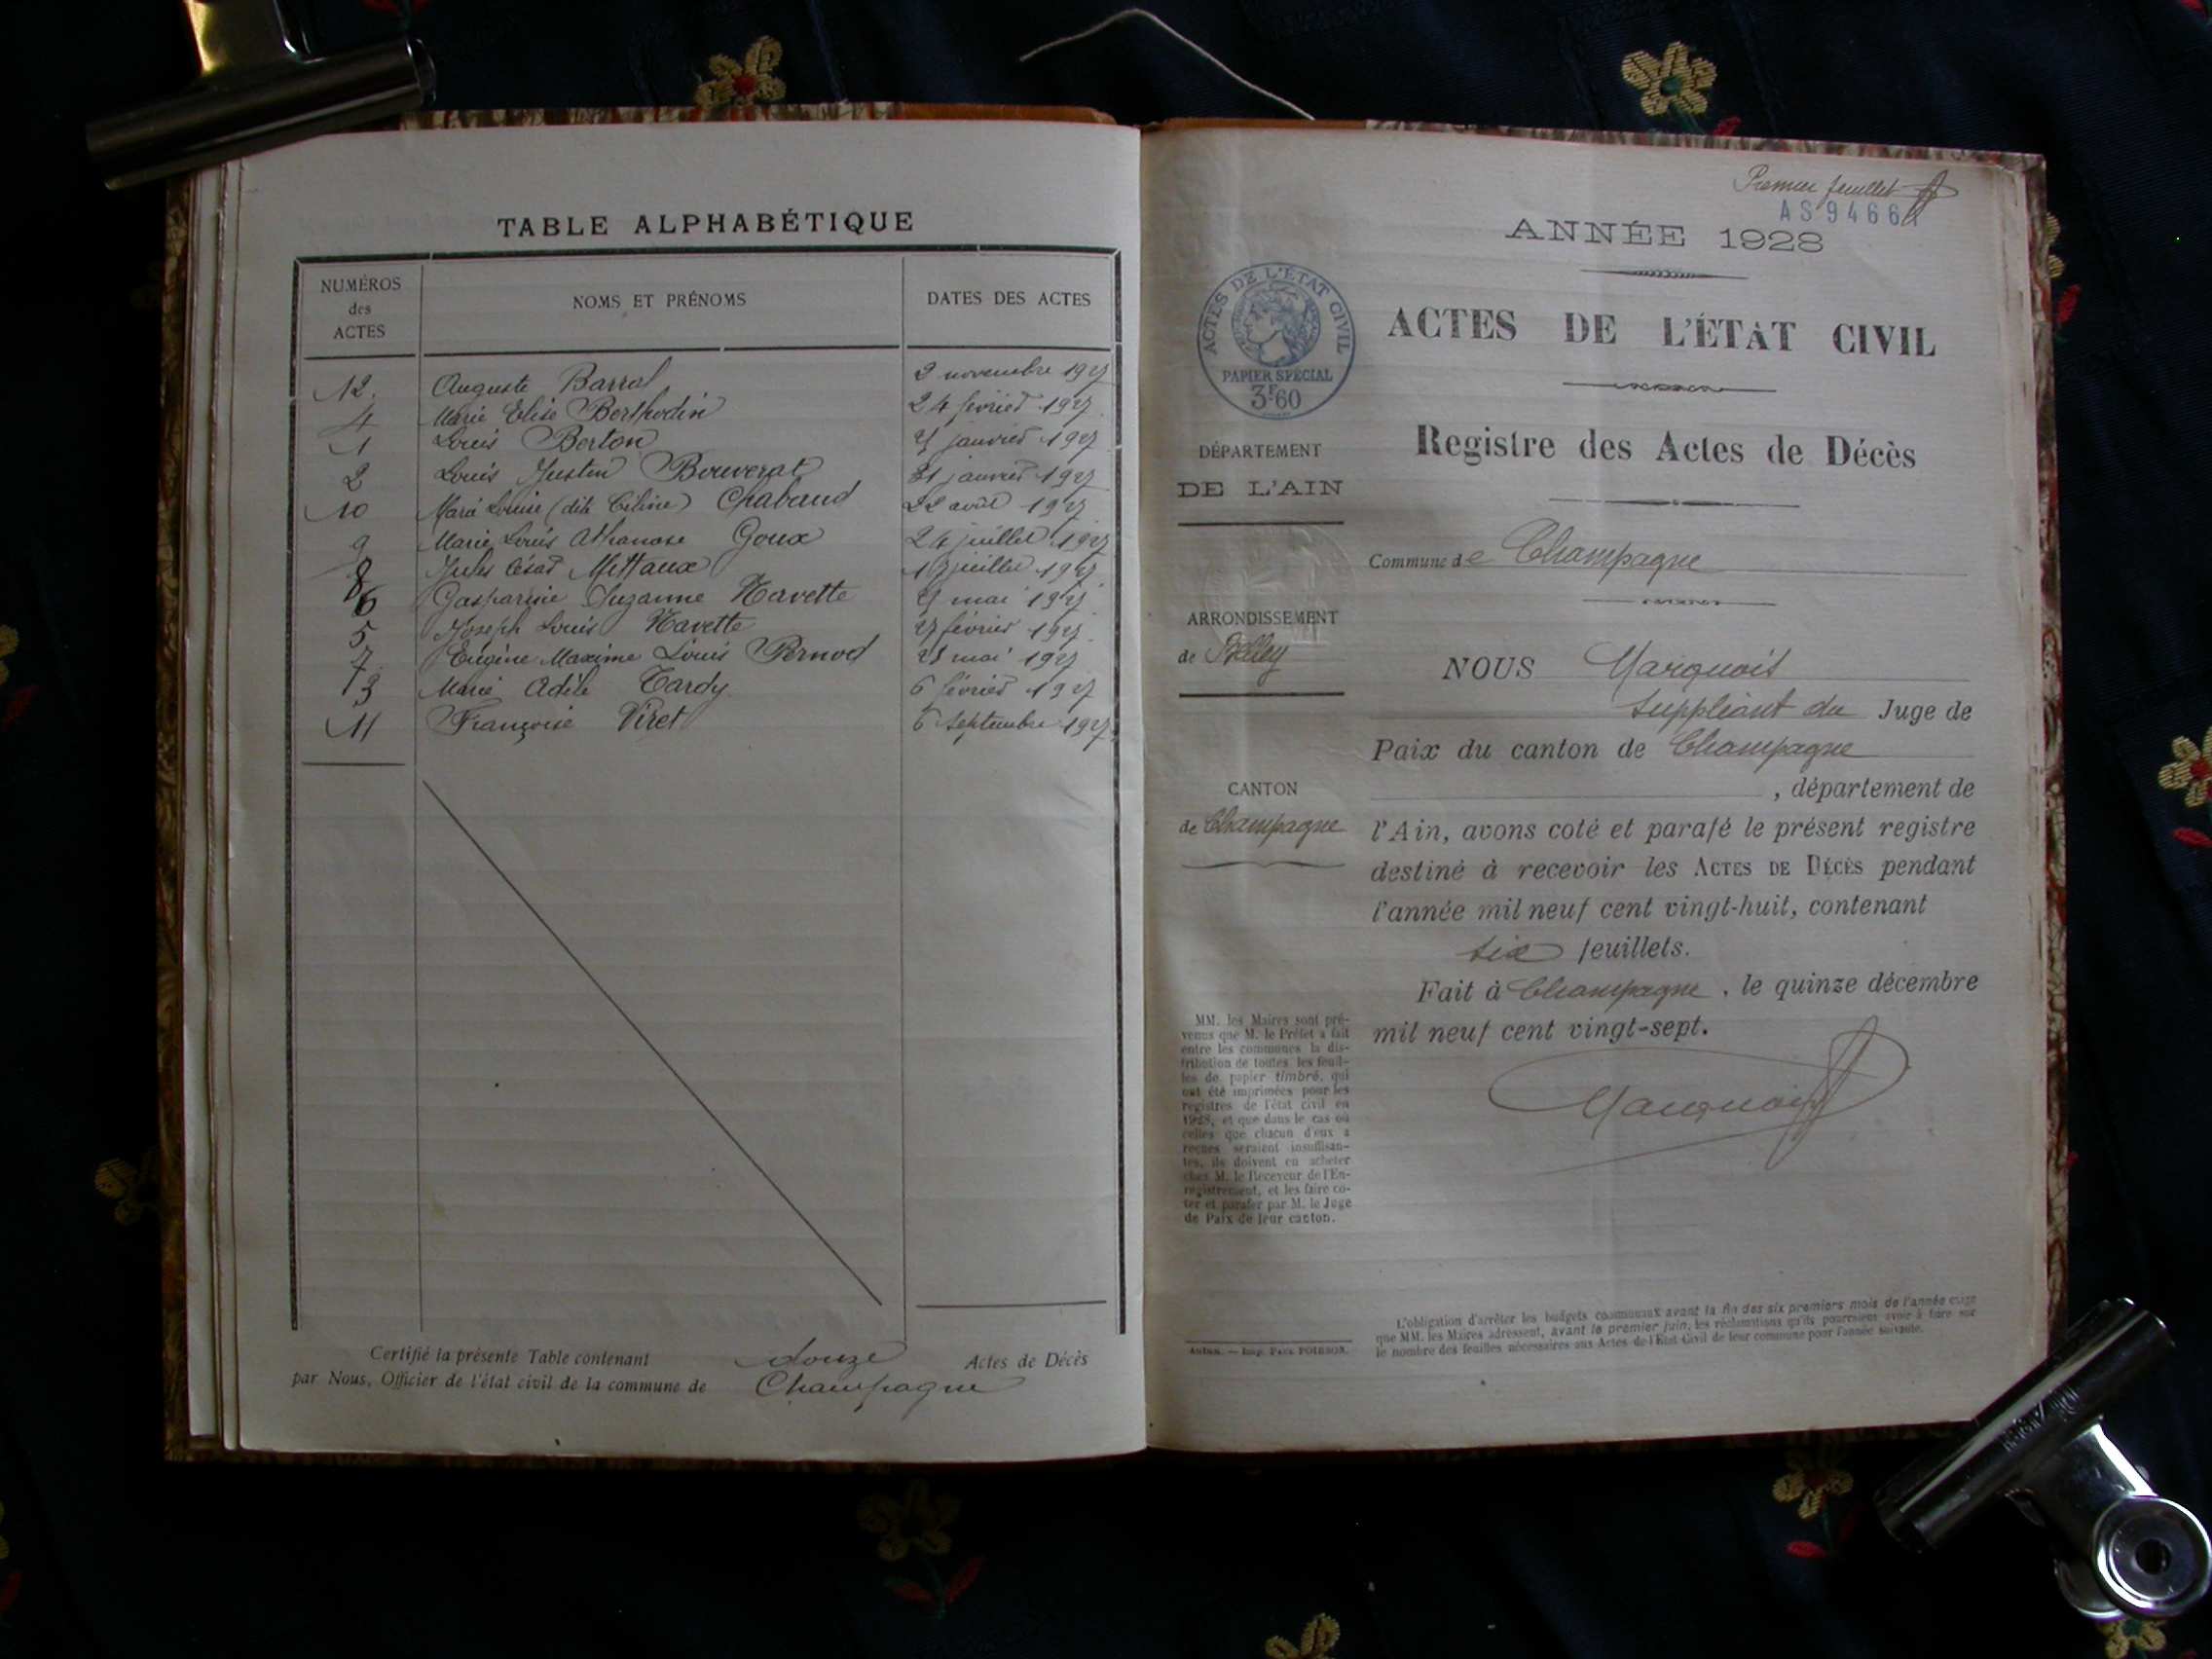 TABLE ALPHABÉTIQUE
NUMÉROS des ACTES NOMS ET PRÉNOMS DATES DES ACTES
12. Auguste Barral 2 novembre 1927
4 Marie Elise Berthodin 24 février 1927
1 Louis Berton janvier 1927
2 Louis Justin Bouverat 31 janvier 1927
10 Marie Louise (dite Céline) Chabaud 22 août 1927
9 Marie Louis Athanase Goux 24 juillet 1927
8 Jules César Mettaux 17 juillet 1927
6 Gasparine Suzanne Navette mai 1927
5 Joseph Louis Navette 27 février 1927
7 Eugène Maxime Louis Pernod mai 1927
3 Marie Adèle Tardy 6 février 1927
11 Françoise Viret 6 septembre 1927
Certifié la présente Table contenant douze Actes de Décès
par Nous, Officier de l'état civil de la commune de Champagne
Premier feuillet
AS9466
ANNÉE 1928
ACTES DE L'ÉTAT CIVIL
PAPIER SPÉCIAL
3F60
ACTES DE L'ÉTAT CIVIL
Registre des Actes de Décès
DÉPARTEMENT
DE L'AIN
Commune de Champagne
ARRONDISSEMENT
de Belley
NOUS Marquois
suppléant du Juge de
Paix du canton de Champagne
, département de
CANTON
de Champagne
l'Ain, avons coté et parafé le présent registre
destiné à recevoir les ACTES DE DÉCÈS pendant
l'année mil neuf cent vingt-huit, contenant
six feuillets.
Fait à Champagne, le quinze décembre
mil neuf cent vingt-sept.
Marquois
MM. les Maires sont pré-
venus que M. le Préfet a fait
entre les communes la dis-
tribution de toutes les feuil-
les de papier timbré, qui
ont été imprimées pour les
registres de l'état civil en
1928, et que dans le cas où
celles que chacun d'eux a
reçues seraient insuffisan-
tes, ils doivent en acheter
chez M. le Receveur de l'En-
registrement, et les faire co-
ter et parafer par M. le Juge
de Paix de leur canton.
L'obligation d'arrêter les budgets communaux avant la fin des six premiers mois de l'année exige
que MM. les Maires adressent, avant le premier juin, les réclamations qu'ils pourraient avoir à faire sur
le nombre des feuilles nécessaires aux Actes de l'Etat Civil de leur commune pour l'année suivante.
Autun. — Imp. Paul POIRSON.